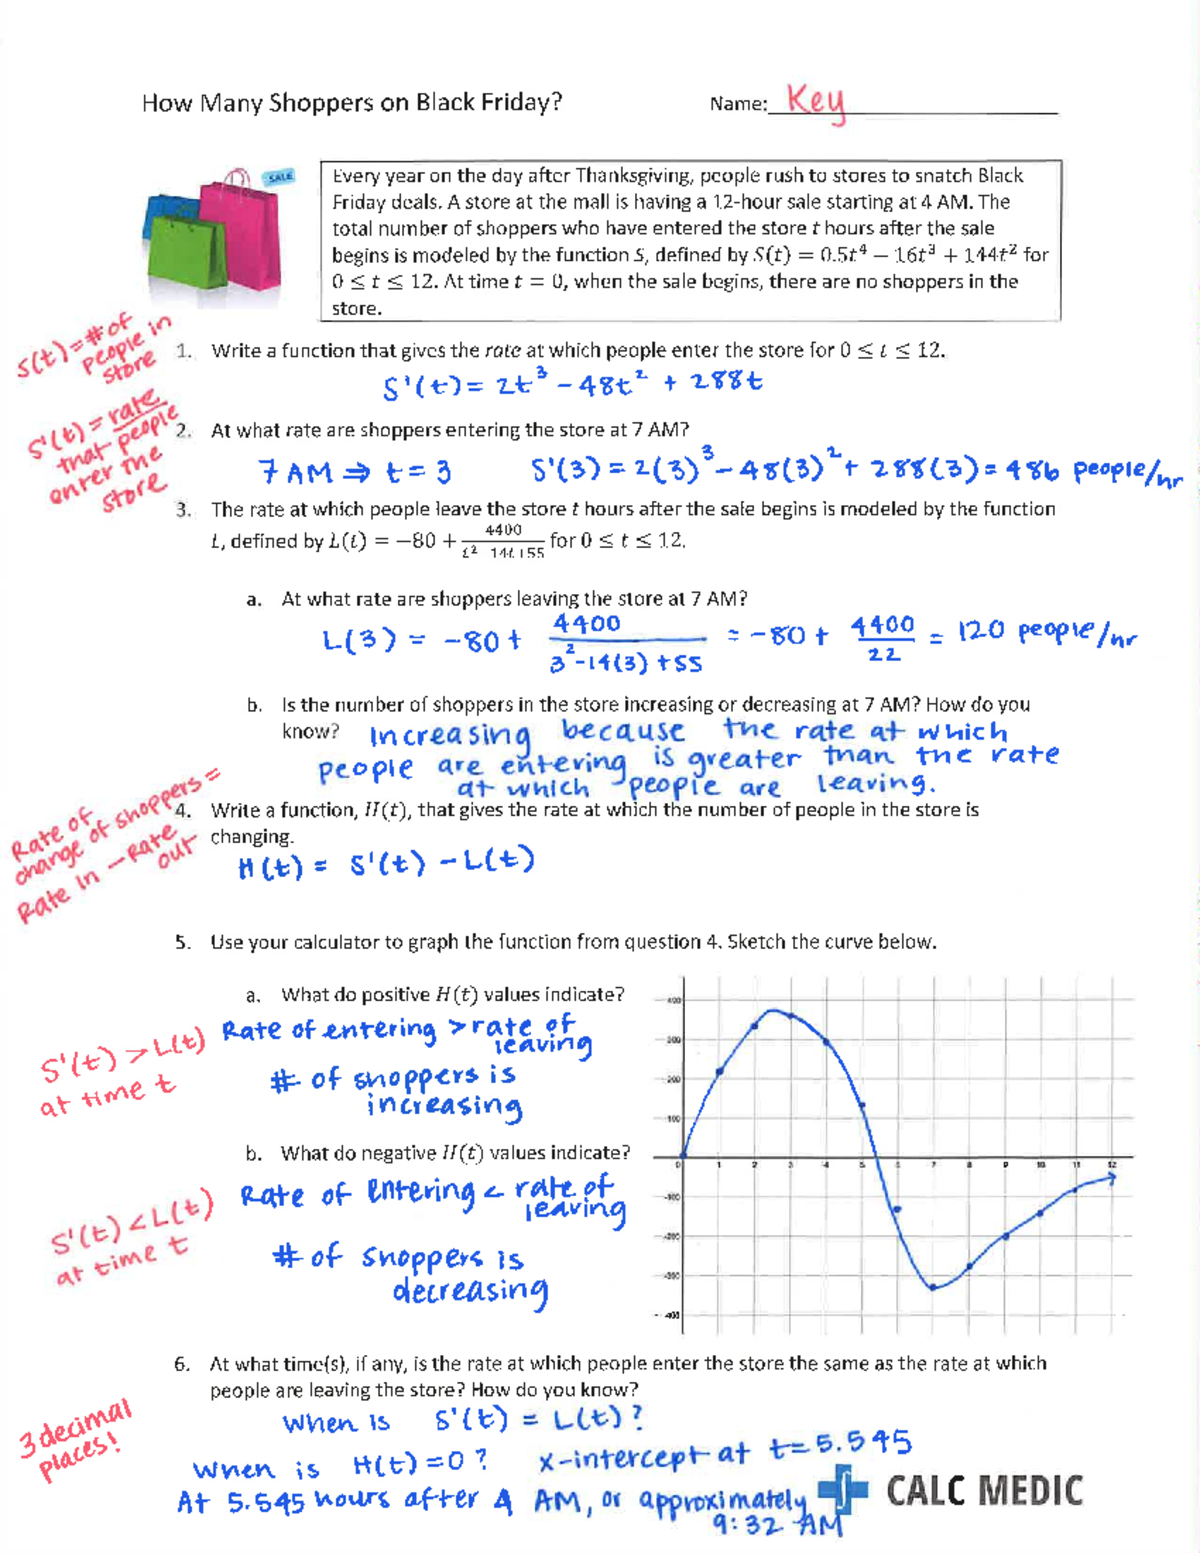 How Many Shoppers on Black Friday?
Name: Key
SALE
Every year on the day after Thanksgiving, people rush to stores to snatch Black
Friday deals. A store at the mall is having a 12-hour sale starting at 4 AM. The
total number of shoppers who have entered the store t hours after the sale
begins is modeled by the function S, defined by S(t) = 0.5t⁴ − 16t³ + 144t² for
0 ≤ t ≤ 12. At time t = 0, when the sale begins, there are no shoppers in the
store.
S(t) = # of
people in
store
1. Write a function that gives the rate at which people enter the store for 0 ≤ t ≤ 12.
S'(t) = 2t³ − 48t² + 288t
S'(t) = rate
that people
enter the
store
2. At what rate are shoppers entering the store at 7 AM?
7 AM ⇒ t = 3 S'(3) = 2(3)³ − 48(3)² + 288(3) = 486 people/hr
3. The rate at which people leave the store t hours after the sale begins is modeled by the function
L, defined by L(t) = −80 + 4400/(t² 14t+55) for 0 ≤ t ≤ 12.
a. At what rate are shoppers leaving the store at 7 AM?
L(3) = −80 + 4400/(3²−14(3)+55) = −80 + 4400/22 = 120 people/hr
b. Is the number of shoppers in the store increasing or decreasing at 7 AM? How do you
know? Increasing because the rate at which
people are entering is greater than the rate
at which people are leaving.
Rate of
change of shoppers =
Rate in − Rate
out
4. Write a function, H(t), that gives the rate at which the number of people in the store is
changing.
H(t) = S'(t) − L(t)
5. Use your calculator to graph the function from question 4. Sketch the curve below.
a. What do positive H(t) values indicate?
S'(t) > L(t)
at time t
Rate of entering > rate of
leaving
# of shoppers is
increasing
b. What do negative H(t) values indicate?
S'(t) < L(t)
at time t
Rate of entering < rate of
leaving
# of shoppers is
decreasing
400
300
200
100
0 1 2 3 4 5 6 7 8 9 10 11 12
-100
-200
-300
-400
6. At what time(s), if any, is the rate at which people enter the store the same as the rate at which
people are leaving the store? How do you know?
3 decimal
places!
When is S'(t) = L(t)?
When is H(t) = 0? x-intercept at t = 5.545
At 5.545 hours after 4 AM, or approximately
9:32 AM
CALC MEDIC